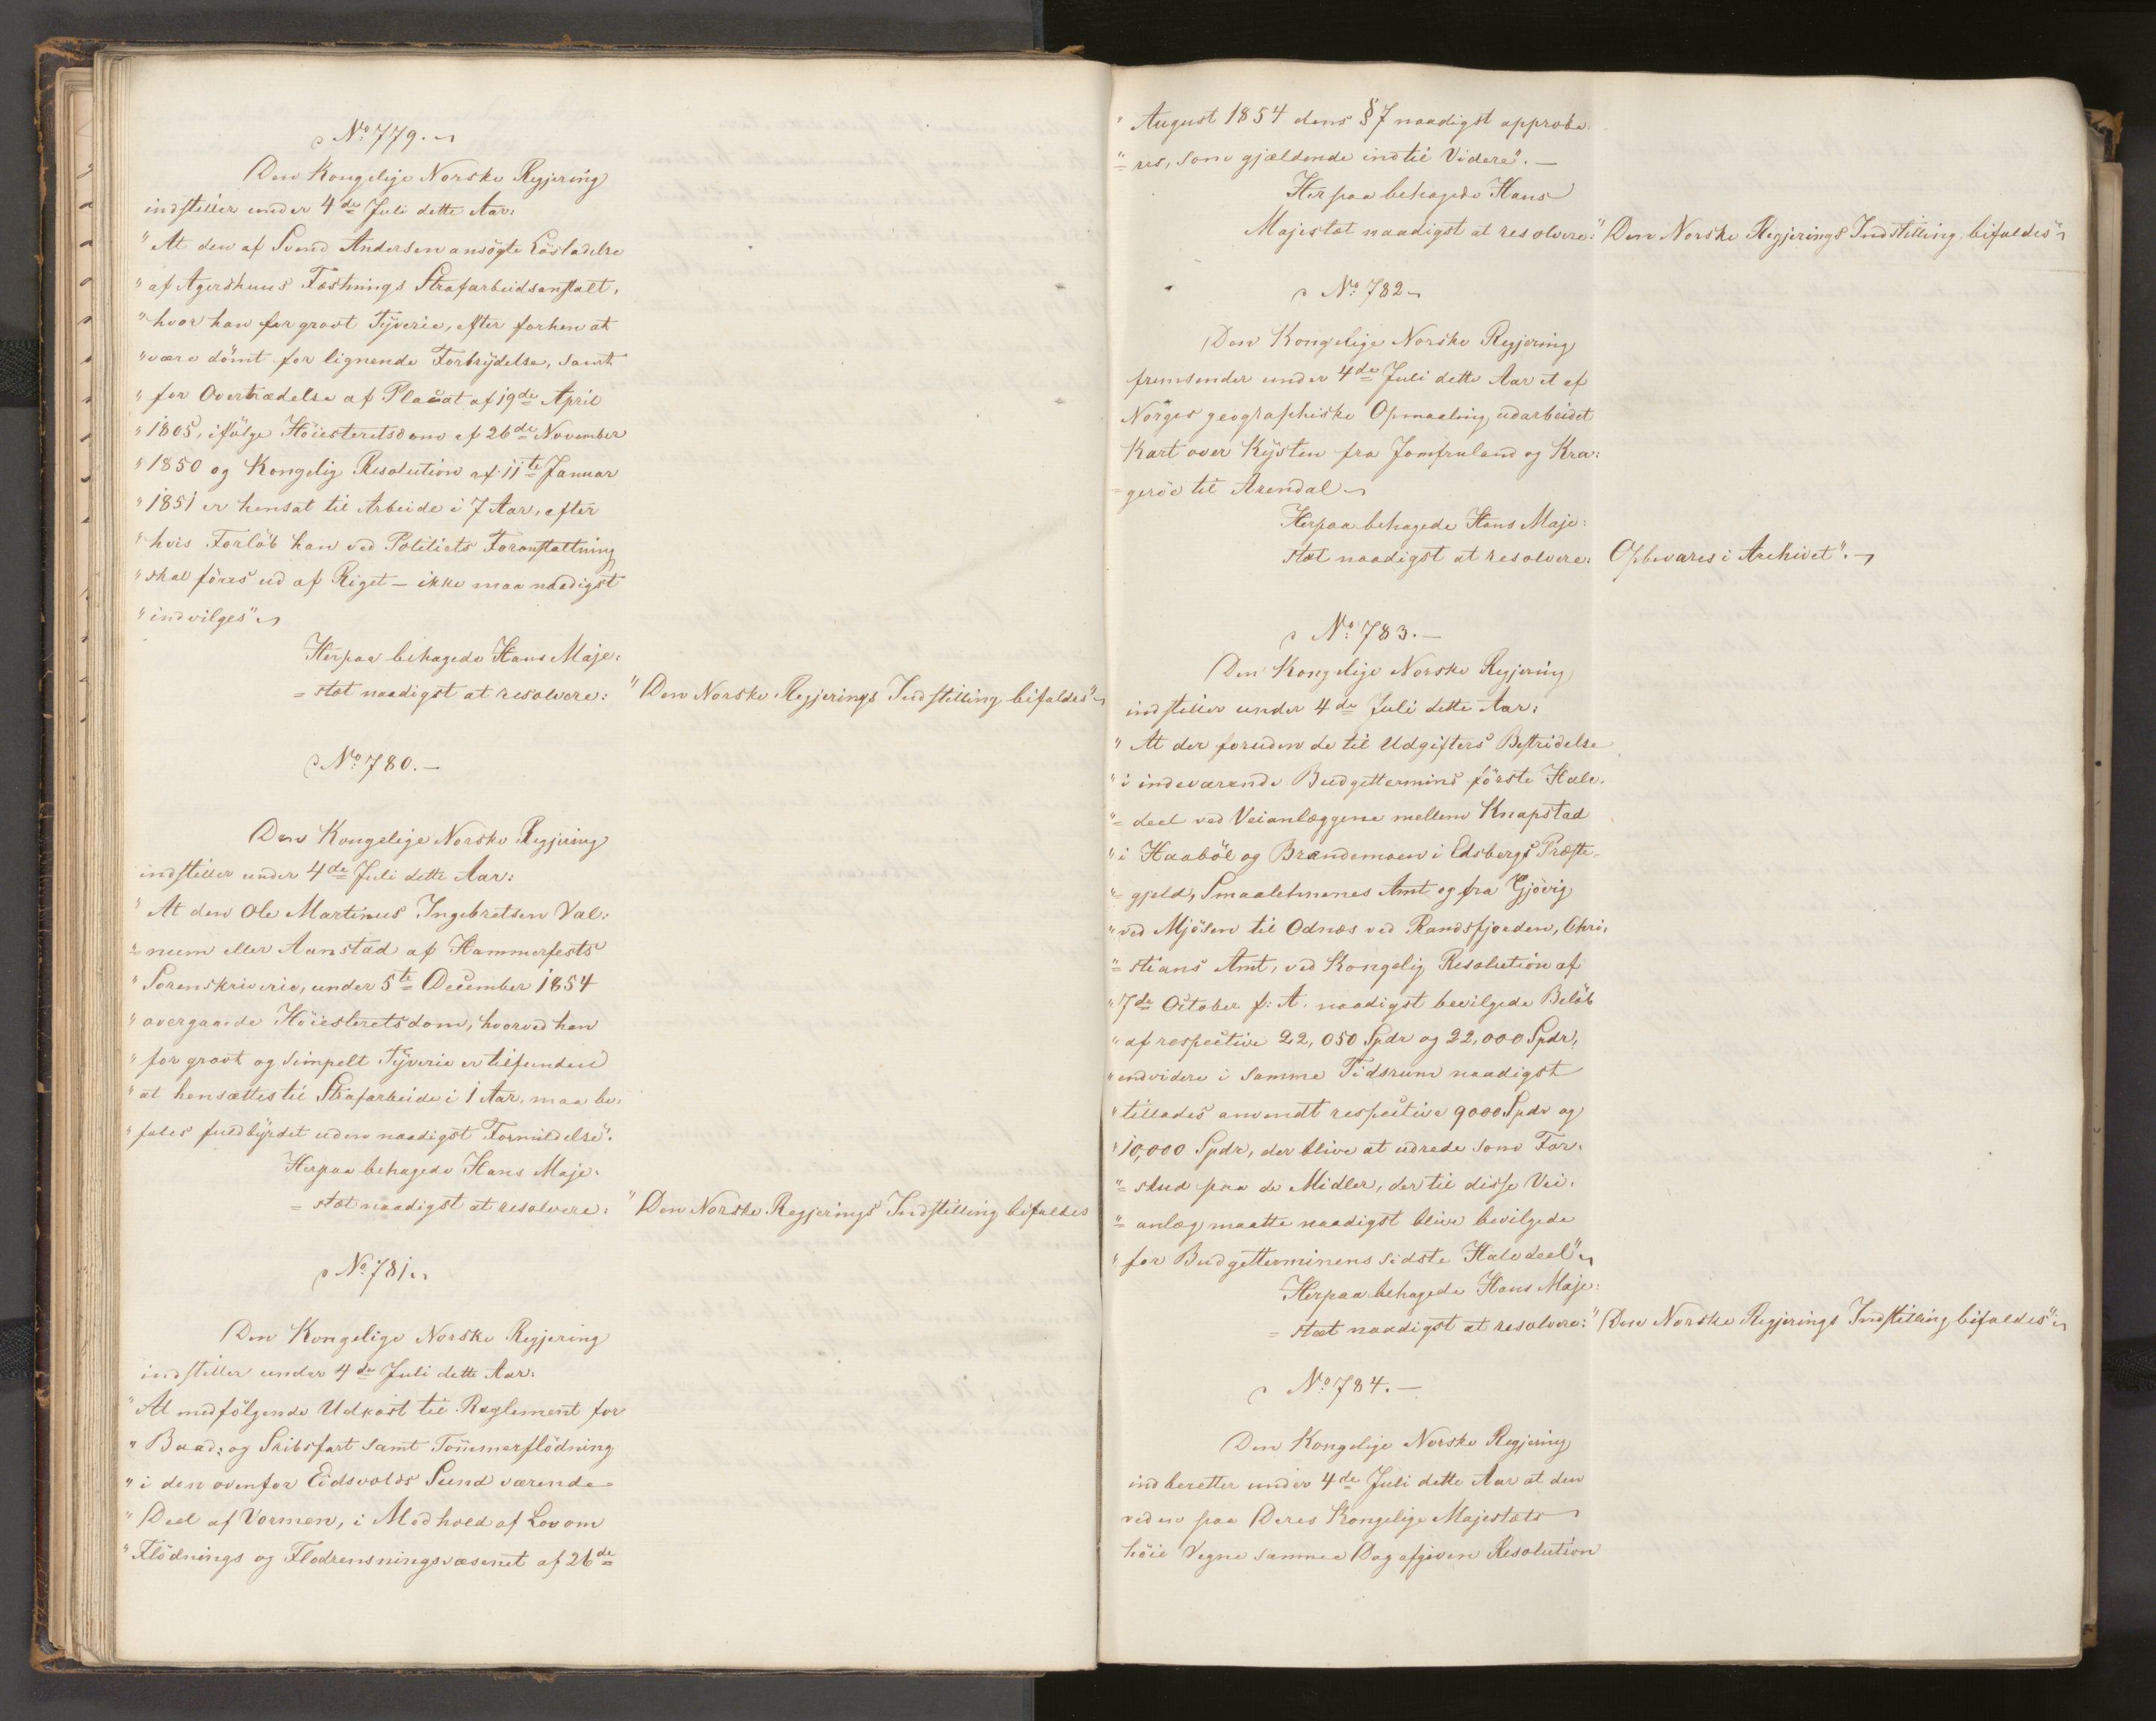 No 779.
Den Kongelige Norske Regjering
indstiller under 4de Juli dette Aar:
"At den af Svend Andersen ansögte Lösladelse
"af Agershuus Fæstnings Strafarbeidsanstalt,
"hvor han for grovt Tyverie, efter forhen at
"være dömt for lignende Forbrydelse, samt
"for Overtrædelse af Placat af 19de April
"1805, ifölge Höiesteretsdom af 26de November
"1850 og Kongelig Resolution af 11te Januar
"1851 er hensat til Arbeide i 7 Aar, efter
"hvis Forlöb han ved Politiets Foranstaltning
"skal föres ud af Riget – ikke maa naadigst
"indvilges"
Herpaa behagede Hans Maje:
=stæt naadigst at resolvere: "Den Norske Regjerings Indstilling bifaldes"
No 780.–
Den Kongelige Norske Regjering
indstiller under 4de Juli dette Aar:
"At den Ole Martinus Ingebretsen Val:
"=num eller Aanstad af Hammerfests
"Sorenskriverie, under 5te December 1854
"overgaaede Höiesteretsdom, hvorved han
"for grovt og simpelt Tyverie er tilfunden
"at hensættes til Strafarbeide i 1 Aar, maa be:
"fales fuldbyrdet uden naadigst Formildelse".
Herpaa behagede Hans Maje:
=stæt naadigst at resolvere: "Den Norske Regjerings Indstilling bifaldes
No 781.
Den Kongelige Norske Regjering
indstiller under 4de Juli dette Aar:
"At medfölgende Udkast til Reglement for
"Baad: og Skibsfart samt Tömmerflödning
"i den ovenfor Eidsvolds Sund værende
"Deel af Vormen, i Medhold af Lov om
"Flödnings og Flodrensningsvæsenet af 26de
"August 1854 dens § 7 naadigst approbe:
"=res, som gjældende indtil Videre".–
Herpaa behagede Hans
Majestæt naadigst at resolvere: "Den Norske Regjerings Indstilling bifaldes"
No 782
Den Kongelige Norske Regjering
fremsender under 4de Juli dette Aar et af
Norges geographiske Opmaaling udarbeidet
Kart over Kysten fra Jomfruland og Kra:
=geröe til Arendal
Herpaa behagede Hans Maje:
stæt naadigst at resolvere: Opbevares i Archivet".
No 783.–
Den Kongelige Norske Regjering
indstiller under 4de Juli dette Aar:
"At der foruden de til Udgifters Bestridelse
"i indeværende Budgettermins förste Halv:
"=deel ved Veianlæggene mellem Knapstad
"i Haaböl og Brandemoen i Edsbergs Præste:
"=gjeld, Smaalehnenes Amt og fra Gjövig
"ved Mjösen til Odnæs ved Randsfjorden, Chri:
"=stians Amt, ved Kongelig Resolution af
"7de October f: A. naadigst bevilgede Belöb
"af respective 22,050 Spdr og 22,000 Spdr,
"endvidere i samme Tidsrum naadigst
"tillades anvendt respective 9000 Spdr og
"10,000 Spdr, der blive at udrede som For:
"=skud paa de Midler, der til disse Vei:
"=anlæg maatte naadigst blive bevilgede
"for Budgetterminens sidste Halvdeel"
Herpaa behagede Hans Maje:
=stæt naadigst at resolvere: "Den Norske Regjerings Indstilling bifaldes"
No 784.–
Den Kongelige Norske Regjering
indberetter under 4de Juli dette Aar at den
ved en paa Deres Kongelige Majestæts
höie Vegne samme Dag afgiven Resolution